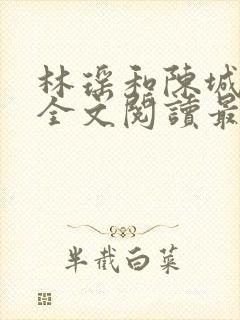 林瑶和陳城
全文閱讀最
半截白菜